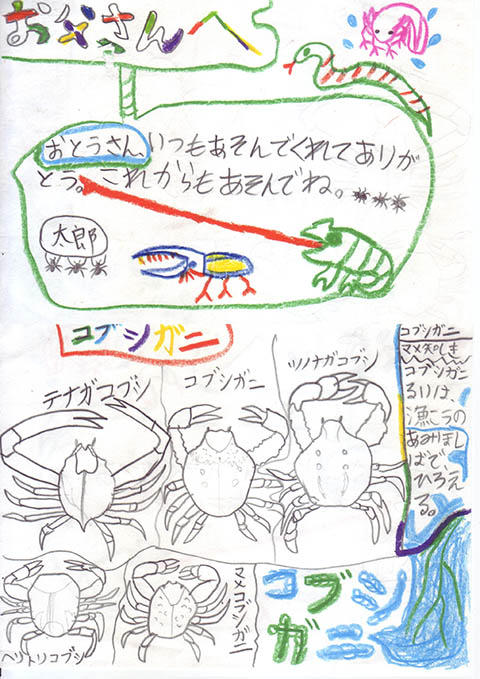 お父さんへ
おとうさん、いつもあそんでくれてありが
とう。これからもあそんでね。
太郎
コブシガニ
テナガコブシ
コブシガニ
ツノナガコブシ
コブシガニ
マメ知しき
コブシガニ
るいは、
漁こうの
あみほし
ばで、
ひろえ
る。
ヘリトリコブシ
マメコブシガニ
コブシ
ガニ